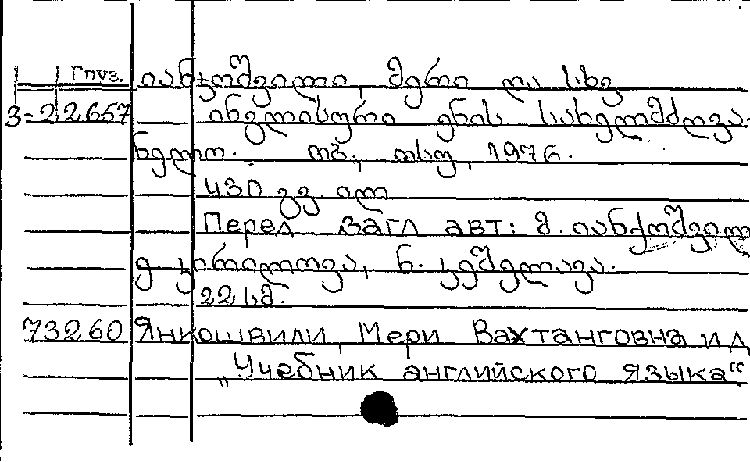 Груз. იანქოშვილი, მერი და სხვ
3-22657 ინგლისური ენის სახელმძღვა-
ნელო. თბ., თსუ, 1976.
430 გვ. ილ
Перед загл авт: მ. იანქოშვილი
ე. კირილოვა, ნ. კემულავა.
22 სმ.
73260 Янкошвили, Мери Вахтанговна и д
„Учебник английского языка“